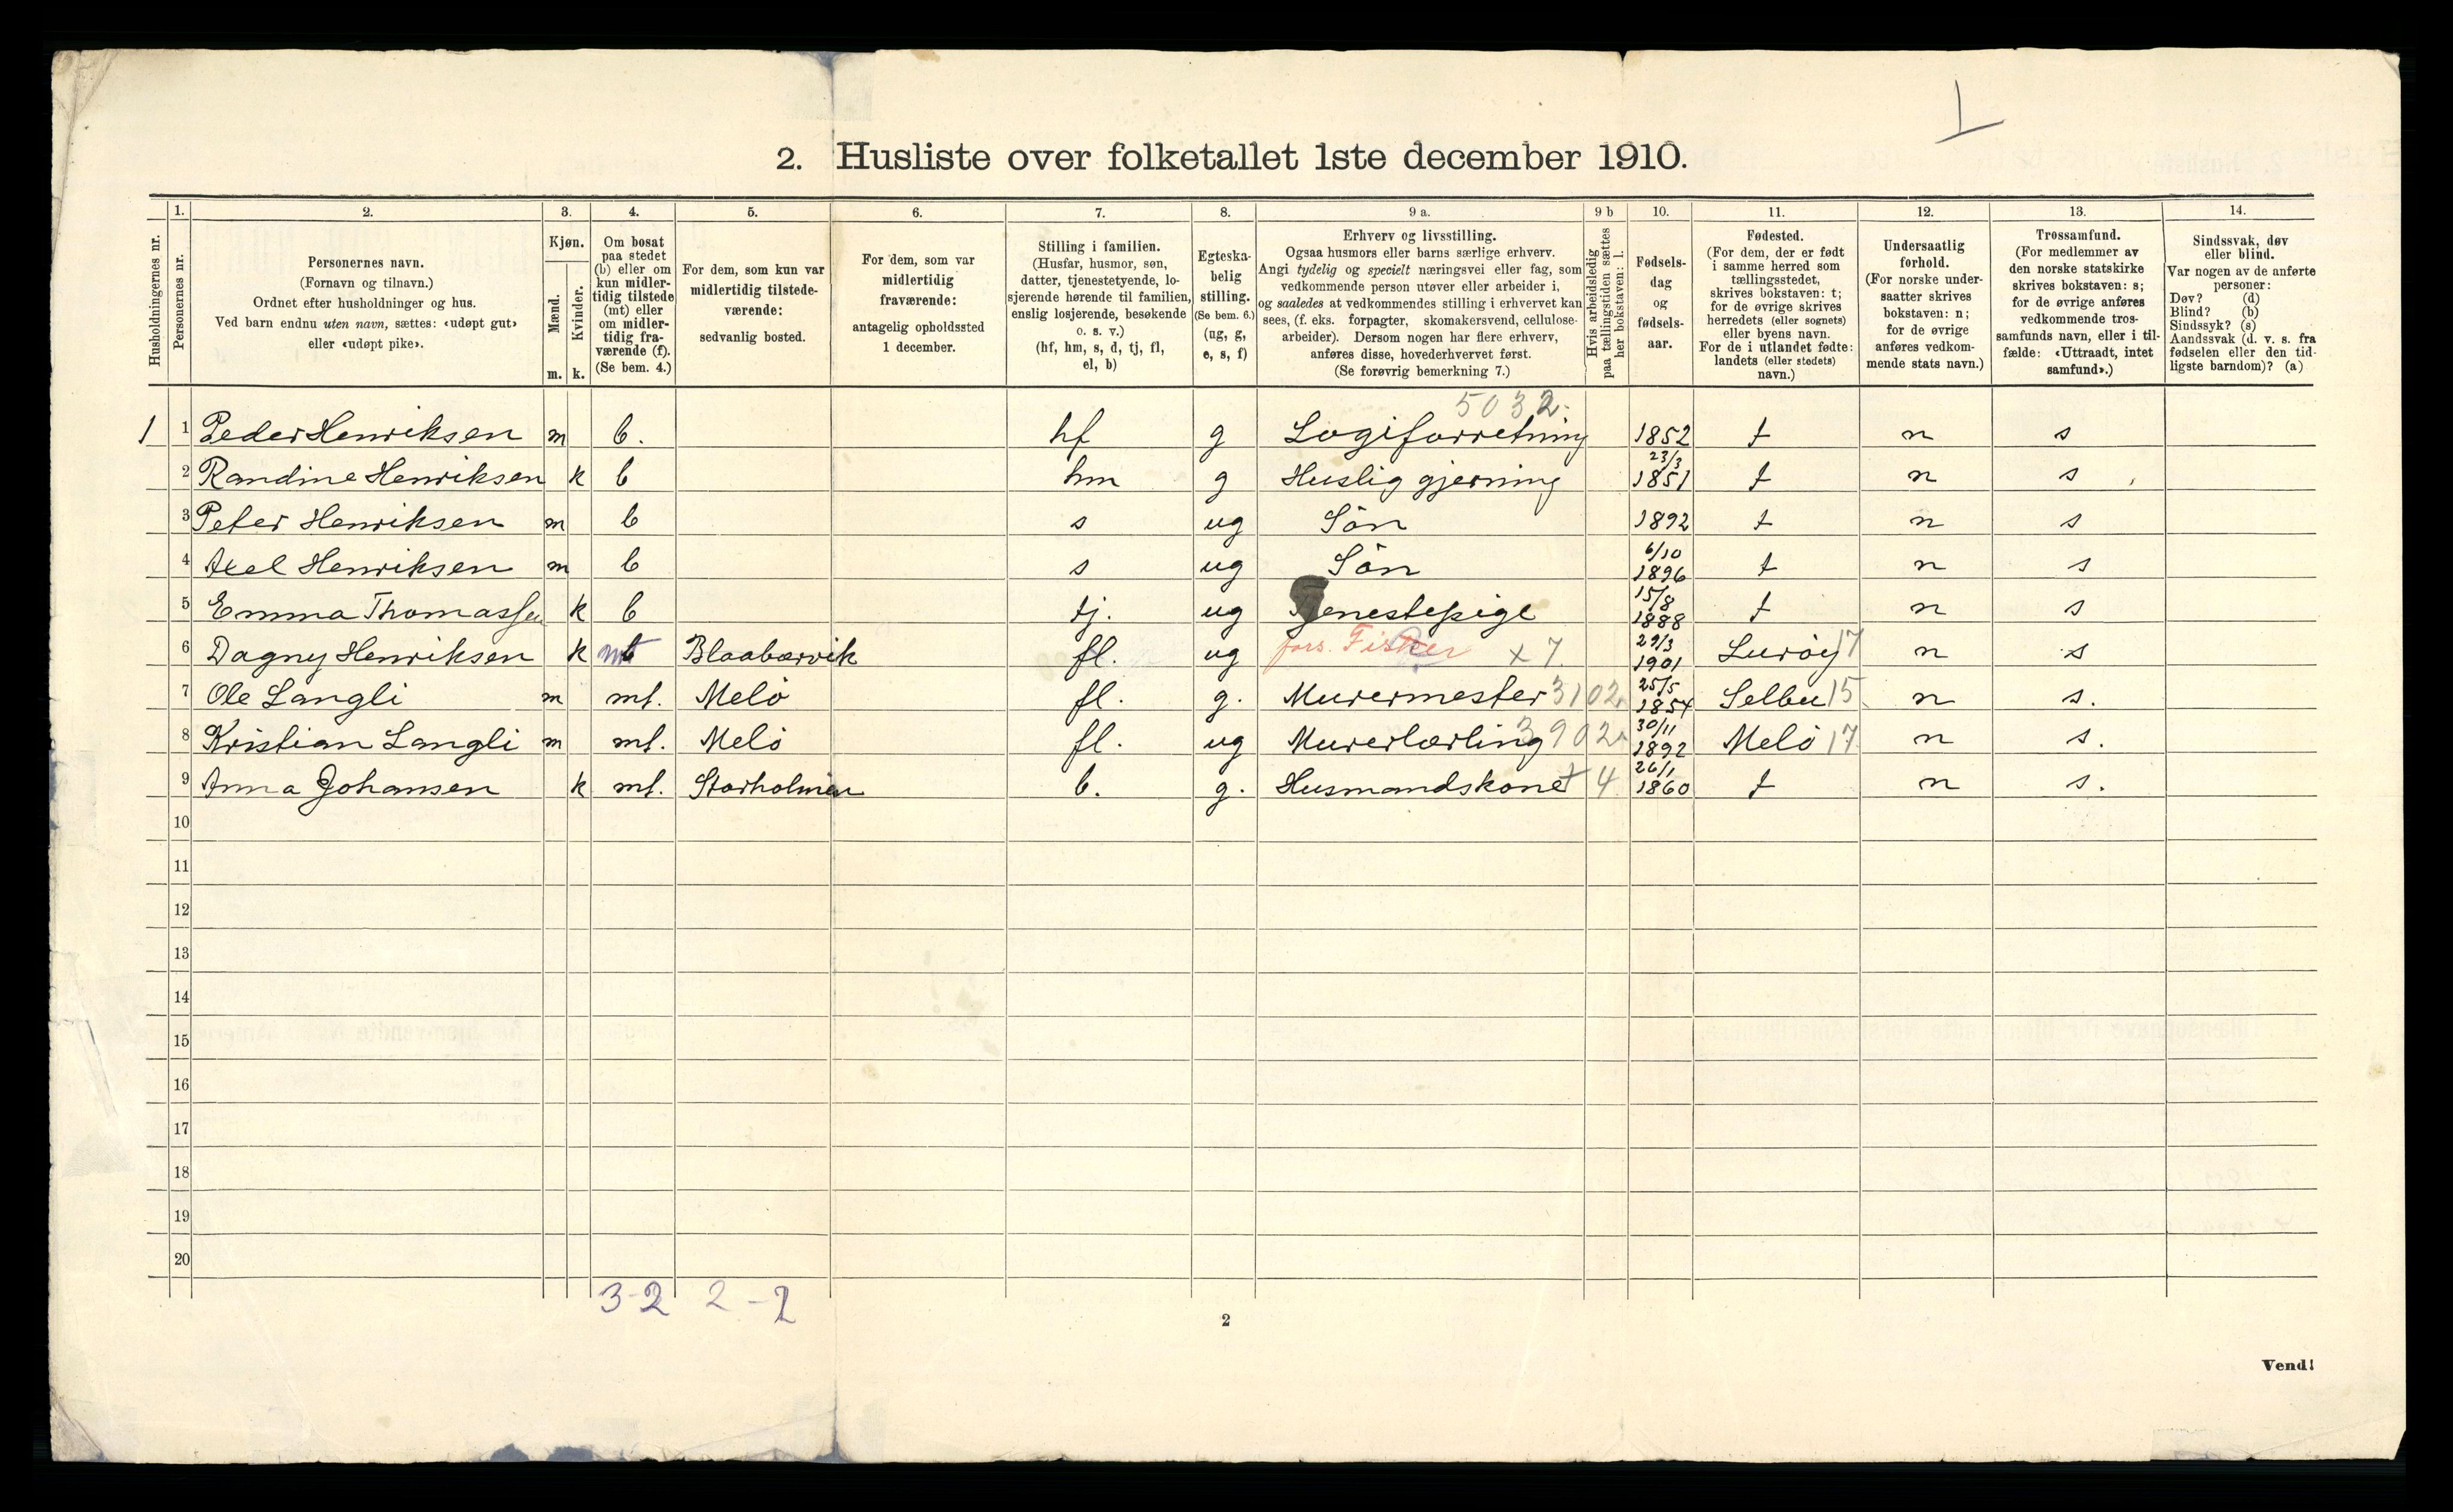 1
2. Husliste over folketallet 1ste december 1910.
Husholdningernes nr.
1.
Personernes nr.
2.
Personernes navn.
(Fornavn og tilnavn.)
Ordnet efter husholdninger og hus.
Ved barn endnu uten navn, sættes: «udøpt gut»
eller «udøpt pike».
3.
Kjøn.
Mænd.
Kvinder.
m. k.
4.
Om bosat
paa stedet
(b) eller om
kun midler-
tidig tilstede
(mt) eller
om midler-
tidig fra-
værende (f).
(Se bem. 4.)
5.
For dem, som kun var
midlertidig tilstede-
værende:
sedvanlig bosted.
6.
For dem, som var
midlertidig
fraværende:
antagelig opholdssted
1 december.
7.
Stilling i familien.
(Husfar, husmor, søn,
datter, tjenestetyende, lo-
sjerende hørende til familien,
enslig losjerende, besøkende
o. s. v.)
(hf, hm, s, d, tj, fl,
el, b)
8.
Egteska-
belig
stilling.
(Se bem. 6.)
(ug, g,
e, s, f)
9 a.
Erhverv og livsstilling.
Ogsaa husmors eller barns særlige erhverv.
Angi tydelig og specielt næringsvei eller fag, som
vedkommende person utøver eller arbeider i,
og saaledes at vedkommendes stilling i erhvervet kan
sees, (f. eks. forpagter, skomakersvend, cellulose-
arbeider). Dersom nogen har flere erhverv,
anføres disse, hovederhvervet først.
(Se forøvrig bemerkning 7.)
9 b
Hvis arbeidsledig
paa tællingstiden sættes
her bokstaven: l.
10.
Fødsels-
dag
og
fødsels-
aar.
11.
Fødested.
(For dem, der er født
i samme herred som
tællingsstedet,
skrives bokstaven: t;
for de øvrige skrives
herredets (eller sognets)
eller byens navn.
For de i utlandet fødte:
landets (eller stedets)
navn.)
12.
Undersaatlig
forhold.
(For norske under-
saatter skrives
bokstaven: n;
for de øvrige
anføres vedkom-
mende stats navn.)
13.
Trossamfund.
(For medlemmer av
den norske statskirke
skrives bokstaven: s;
for de øvrige anføres
vedkommende tros-
samfunds navn, eller i til-
fælde: «Uttraadt, intet
samfund».)
14.
Sindssvak, døv
eller blind.
Var nogen av de anførte
personer:
Døv? (d)
Blind? (b)
Sindssyk? (s)
Aandssvak (d. v. s. fra
fødselen eller den tid-
ligste barndom)? (a)
5032.
1 1 Peder Henriksen m b. hf g Logiforretning 1852 t n s
2 Randine Henriksen k b hm g Huslig gjerning 23/3 1851 t n s
3 Peter Henriksen m b s ug Sön 1892 t n s
4 Axel Henriksen m b s ug Sön 6/10 1896 t n s
5 Emma Thomassen k b tj. ug Tjenestepige 15/8 1888 t n s
6 Dagny Henriksen k mt Blaabærvik fl. ug fors. Fisker x 7 29/3 1901 Luröy 17 n s
7 Ole Langli m mt. Melö fl. g. Murermester 3102. 25/5 1854 Selbu 15 n s.
8 Kristian Langli m mt. Melö fl. ug Murerlærling 3902 30/11 1892 Melö 17 n s.
9 Anna Johansen k mt. Storholmen b. g. Husmandskone x 4 26/1 1860 t n s.
10
11
12
13
14
15
16
17
18
19
20
3-2 2-2
2
Vend!